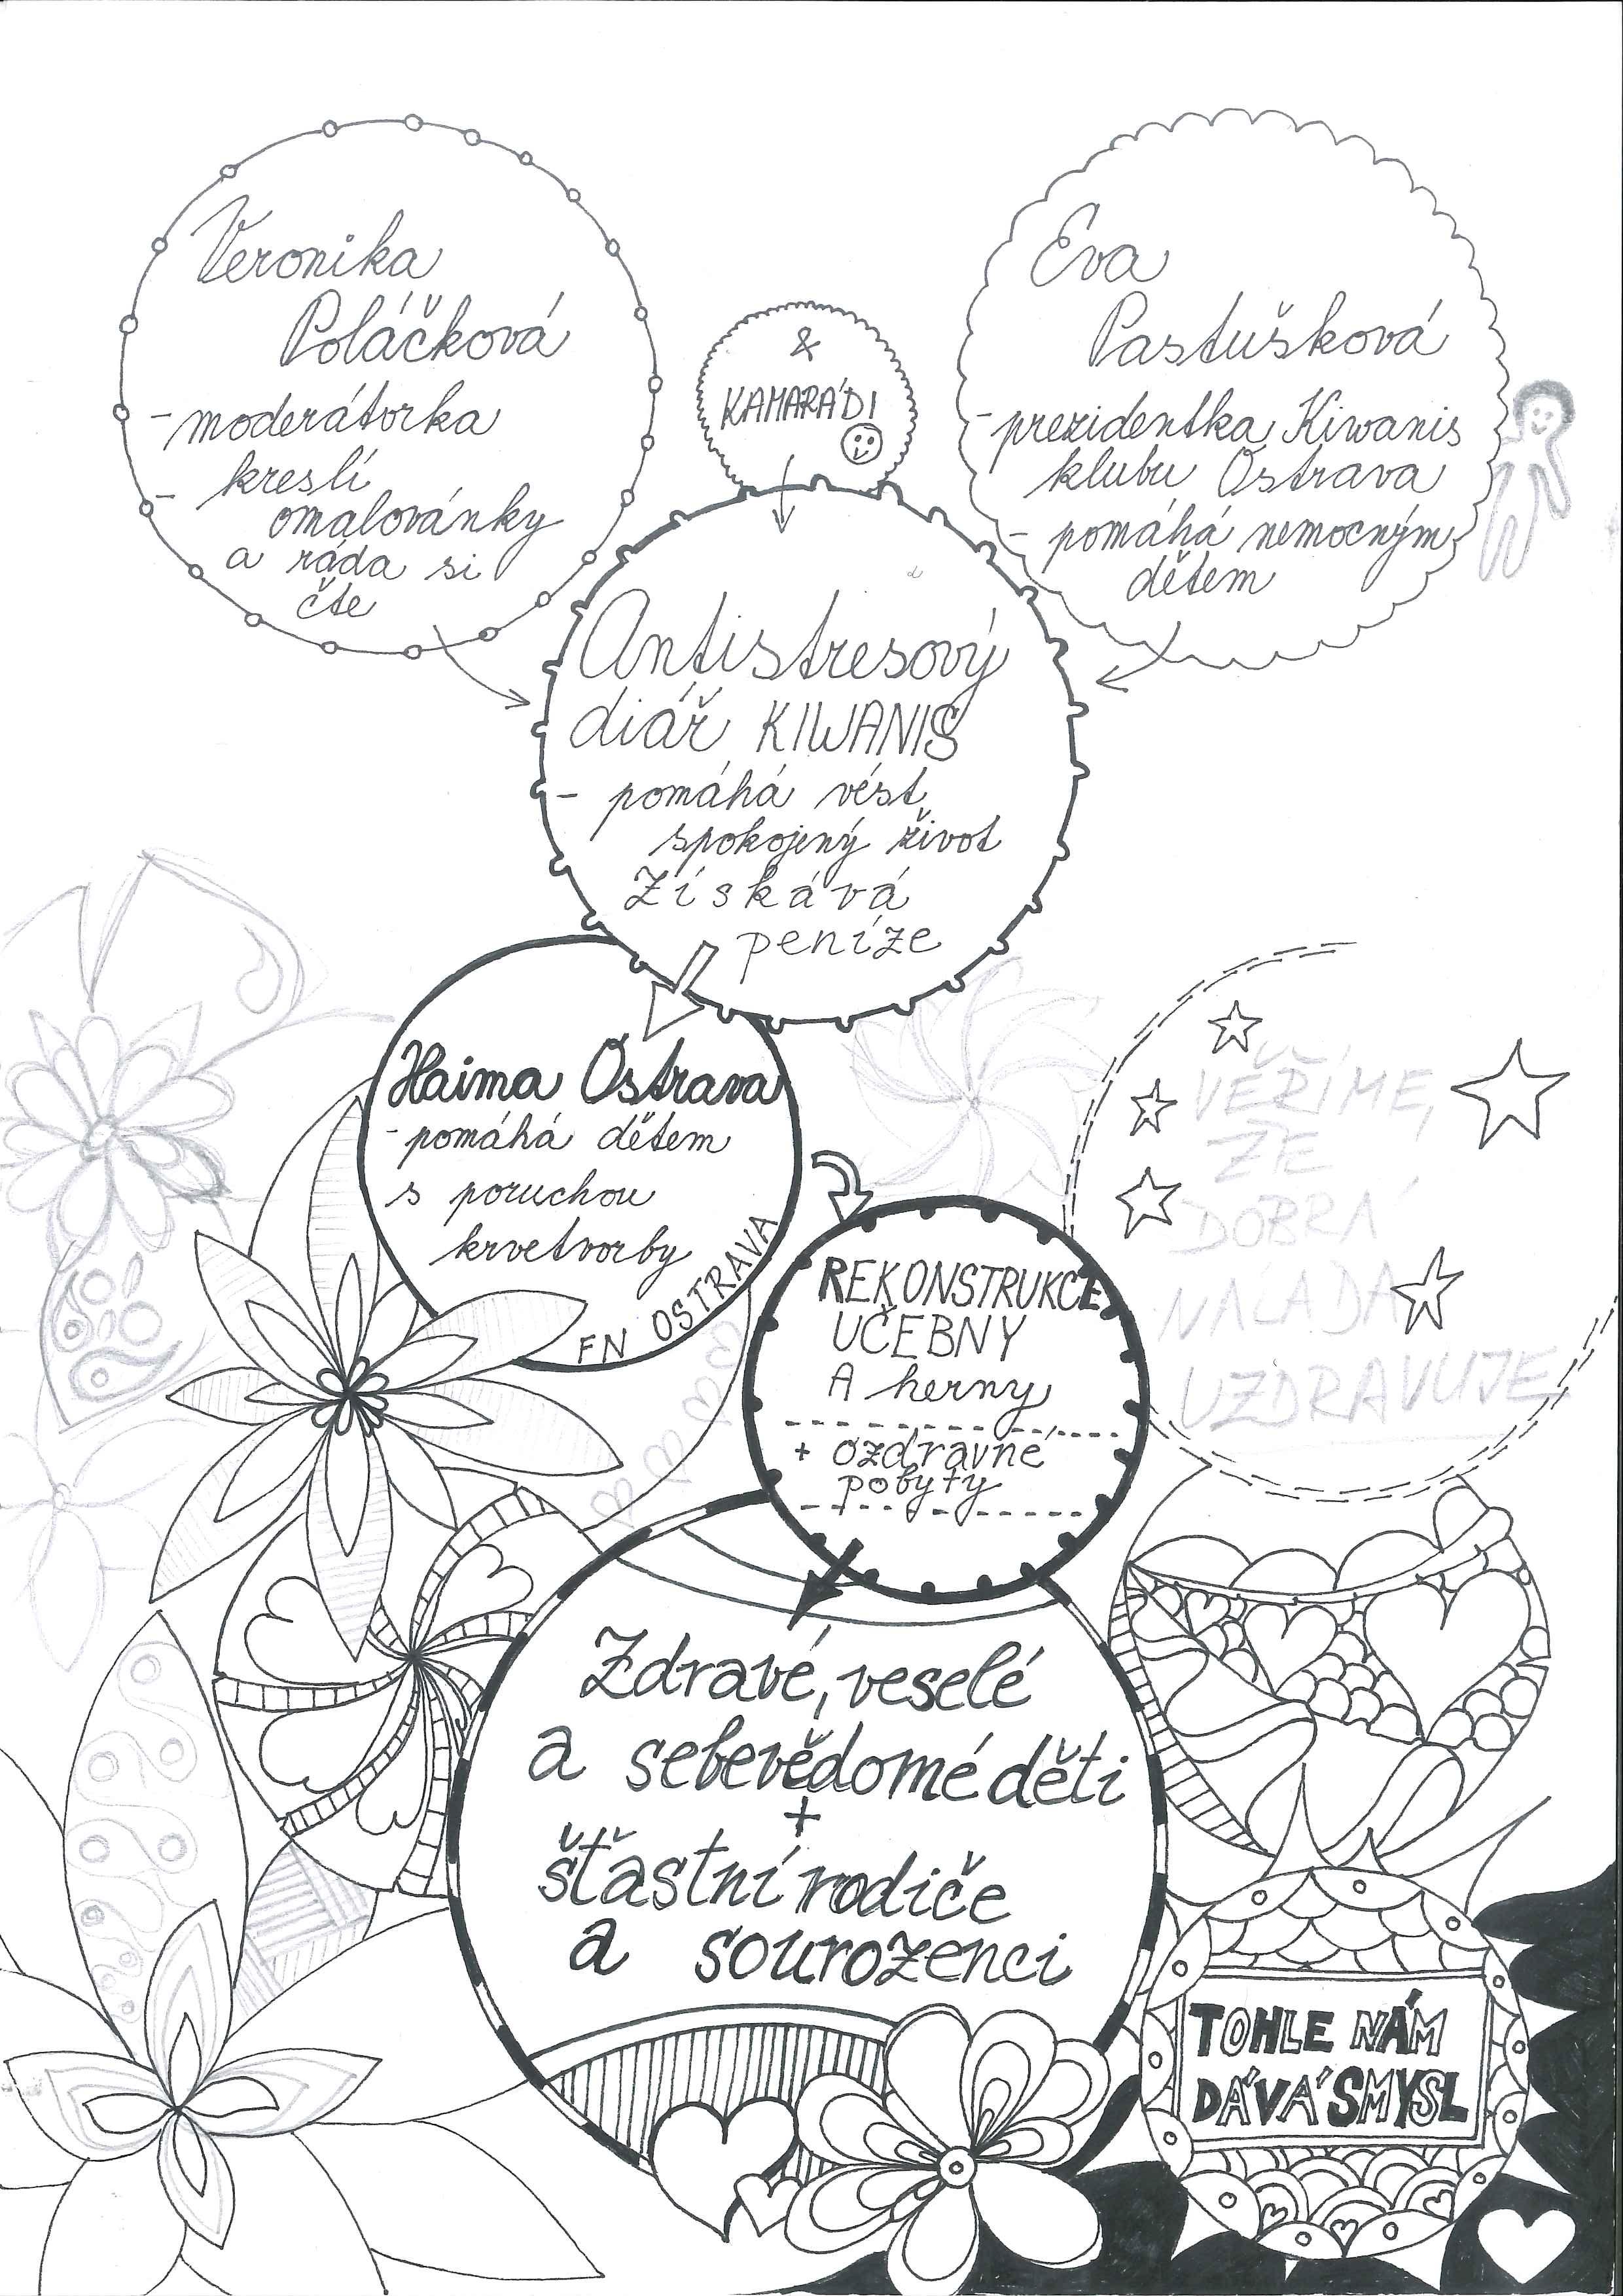 Veronika
Poláčková
- moderátorka
- kreslí
omalovánky
a ráda si
čte
&
KAMARÁDI
Eva
Pastušková
- prezidentka Kiwanis
klubu Ostrava
- pomáhá nemocným
dětem
Antistresový
diář KIWANIS
- pomáhá vést
spokojený život
Získává
peníze
Haima Ostrava
- pomáhá dětem
s poruchou
krvetvorby
FN OSTRAVA
VĚŘÍME,
ŽE
DOBRÁ
NÁLADA
UZDRAVUJE
REKONSTRUKCE
UČEBNY
A herny
+ ozdravné
pobyty
Zdravé, veselé
a sebevědomé děti
+
šťastní rodiče
a sourozenci
TOHLE NÁM
DÁVÁ SMYSL